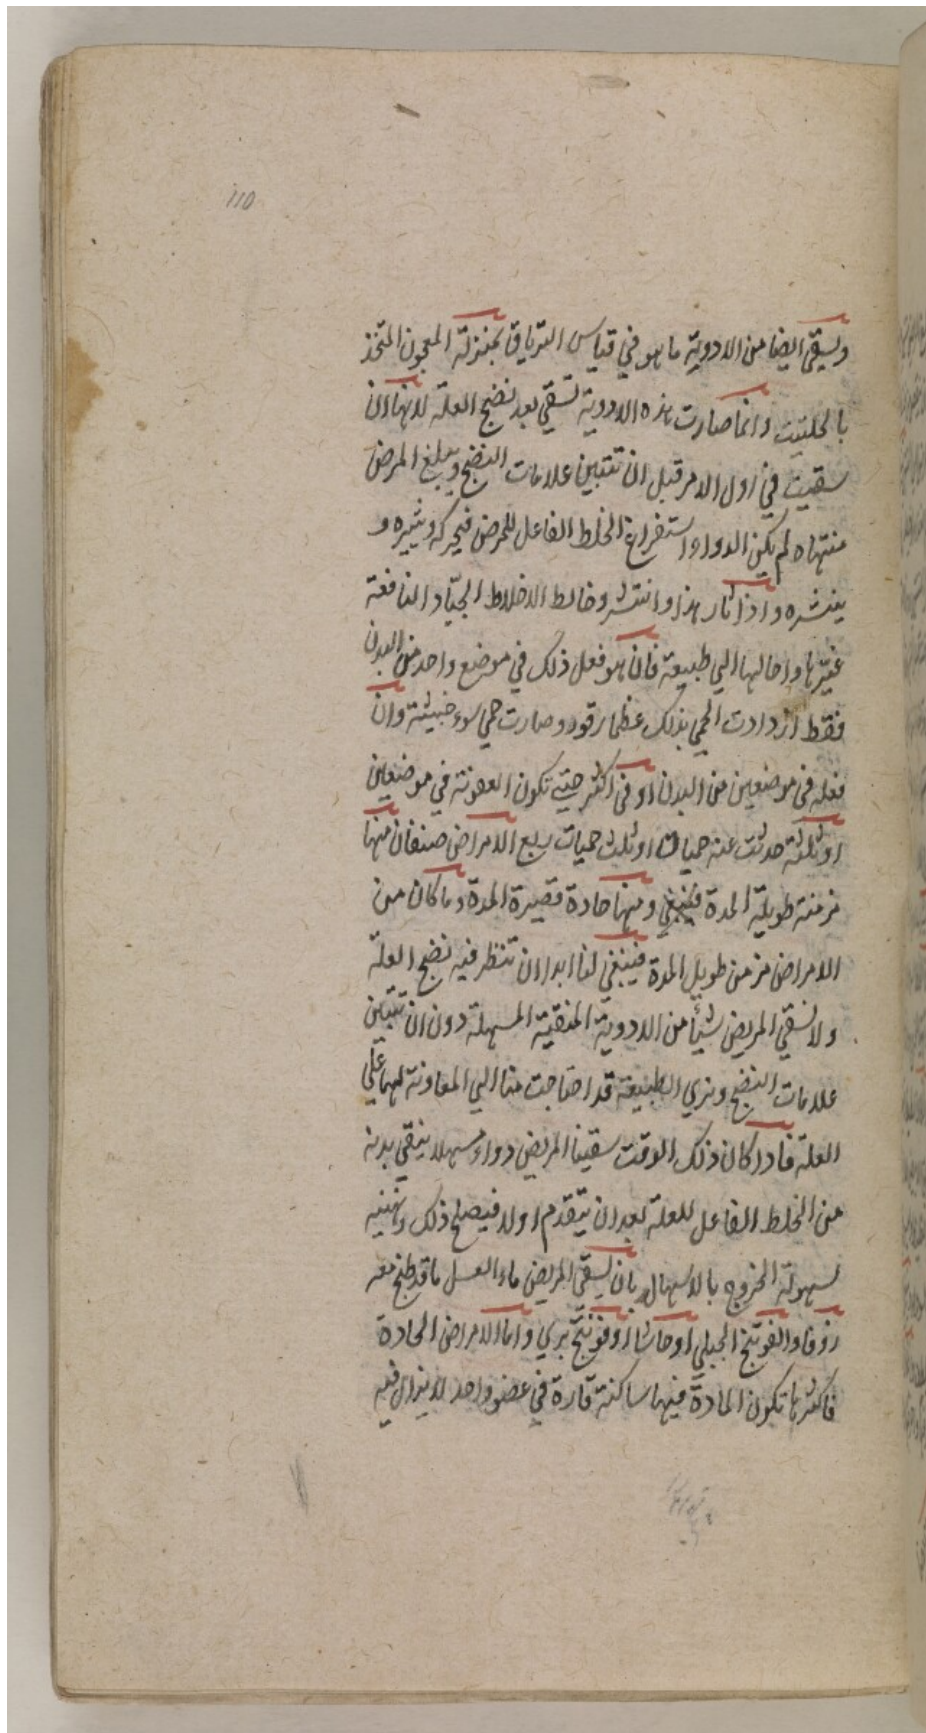 110
ويسقي ايضا من الادوية ما هو في قياس الترياق بمنزلة المعجون المتخذ
بالحلتيت وانما صارت هذه الادوية تسقي بعد نضج العلة لانها ان
سقيت في اول الامر قبل ان تتبين علامات النضج ويبلغ المرض
منتهاه لم يكن الدواء استفراغ الخلط الفاعل للمرض فيحركه ويثيره و
ينشره واذا ثار هذا وانتشر وخالط الاخلاط الجياد النافعة
غيرها واحالها الي طبيعته فان هو فعل ذلك في موضع واحد من البدن
فقط ازدادت الحمي بذلك عظما وقوة وصارت حمي سوء خبيثة وان
فعله في موضعين من البدن او في اكثر حتي تكون العفونة في موضعين
او ثلثة حدثت عنه حميات او ثلث حميات ربع الامراض صنفان منها
مزمنة طويلة المدة ومنها حادة قصيرة المدة وما كان من
الامراض مزمن طويل المدة فينبغي لنا ابدا ان ننتظر فيه نضج العلة
ولا نسقي المريض شيئا من الادوية المنقية المسهلة دون ان تتبين
علامات النضج ونري الطبيعة قد احتاجت منا الي المعاونة لها علي
العلة فاذا كان ذلك الوقت سقينا المريض دواء مسهلا ينقي بدنه
من الخلط الفاعل للعلة بعد ان يتقدم اولا فيصلح ذلك ونهيئه
لسهولة الخروج بالاسهال بان يسقي المريض ماء العسل ما قد طبخ معه
زوفا والفوتنج الجبلي او حاشا او فوتنج بري واما الامراض الحادة
فاكثرها تكون المادة فيها ساكنة قارة في عضو واحد لا يزال فيه